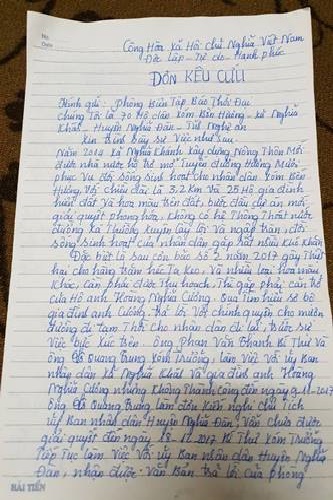 No.
Date
Cộng Hòa Xã Hội chủ Nghĩa Việt Nam
Độc Lập - Tự do - Hạnh phúc
ĐƠN KÊU CỨU
Kính gửi : Phòng Biên Tập Báo Thời Đại
chúng Tôi là 70 Hộ dân xóm Bàu Hương - xã Nghĩa
Khánh - Huyện Nghĩa Đàn - Tỉnh Nghệ an
Kính trình bày sự việc như sau
Năm 2014 xã Nghĩa Khánh xây dựng Nông Thôn Mới
được nhà nước hỗ trợ mở Tuyến đường Hương Mười
phục vụ đời sống sinh hoạt cho nhân dân xóm Bàu
Hương. Với chiều dài là 3,2 Km và 25 Hộ gia đình
hiến đất và hoa màu trên đất, bước đầu dự án mới
giải quyết phong hóa, không có hệ Thống Thoát nước
đường xã Thường xuyên lầy lội và ngập tràn, đời
sống sinh hoạt của nhân dân gặp rất nhiều khó khăn
Đặc biệt là sau cơn bão số 2 năm 2017 gây Thiệt
hại cho hàng trăm héc Ta keo, và nhiều loại hoa màu
khác, cần phải được Thu hoạch, Thì gặp phải cản trở
của Hộ anh Hoàng Nghĩa Cường. Qua Tìm hiểu sơ bộ
gia đình anh Cường. Trả lời với chính quyền cho mượn
đường đi tạm Thời cho nhân dân đi lại, trước sự
việc bức xúc trên. ông Phan Văn Thanh Bí Thư và
ông Đỗ Quang Trung xóm Trưởng, làm việc với ủy ban
nhân dân xã Nghĩa Khánh và gia đình anh Hoàng
Nghĩa Cường nhưng không Thành công đến ngày 9-11-2017
ông Đỗ Quang Trung làm đơn kiến nghị chủ Tịch
ủy Ban nhân dân Huyện Nghĩa Đàn, Vẫn chưa được
giải quyết đến ngày -11-2017 Bí Thư xóm Trưởng
Tiếp Tục làm việc với ủy ban nhân dân Huyện Nghĩa
Đàn, nhận được Văn Bản Trả lời của phòng
HẢI TIẾN